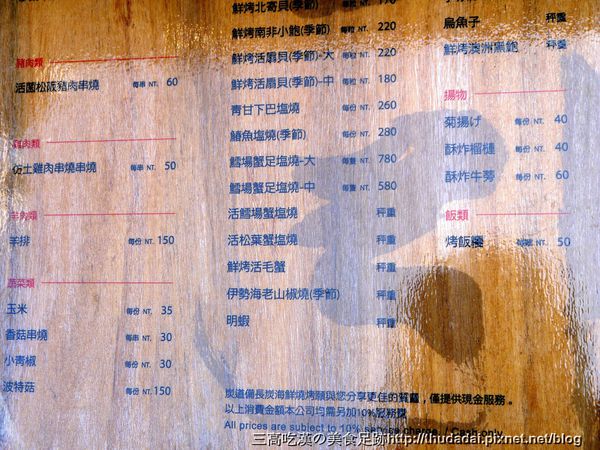 豬肉類
活菌松阪豬肉串燒 每串 NT. 60
雞肉類
仿土雞肉串燒串燒 每串 NT. 50
羊肉類
羊排 每份 NT. 150
蔬菜類
玉米 每份 NT. 35
香菇串燒 每串 NT. 30
小青椒 每份 NT. 30
波特菇 每份 NT. 150
鮮烤北寄貝(季節) 170
鮮烤南非小鮑(季節) 每粒 NT. 220
鮮烤活扇貝(季節)-大 每粒 NT. 220
鮮烤活扇貝(季節)-中 每粒 NT. 180
青甘下巴塩燒 每份 NT. 260
鰆魚塩燒(季節) 每份 NT. 280
鱈場蟹足塩燒-大 每隻 NT. 780
鱈場蟹足塩燒-中 每隻 NT. 580
活鱈場蟹塩燒 秤重
活松葉蟹塩燒 秤重
鮮烤活毛蟹 秤重
伊勢海老山椒燒(季節) 秤重
明蝦 秤重
烏魚子 秤重
鮮烤澳洲黑鮑 秤重
揚物
菊揚げ 每份 NT. 40
酥炸榴槤 每份 NT. 40
酥炸牛蒡 每份 NT. 60
飯類
烤飯糰 NT. 50
炭道備長炭海鮮燒烤願與您分享更佳的質量，僅提供現金服務。
以上消費金額本公司均需另加10%服務費
All prices are subject to 10% service charge. / Cash only
三高吃漢の美食足跡http://thudadai.pixnet.net/blog